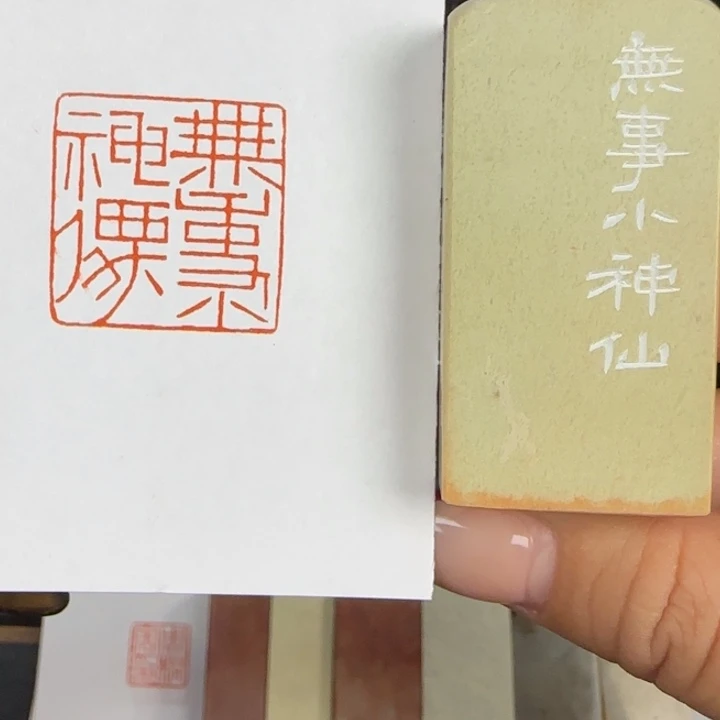 無事小
神僊
無事小神仙